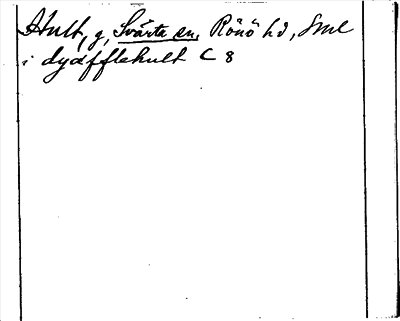 Hult, g, Svärta sn, Rönö hd, Sml
i dydfflehult C 8